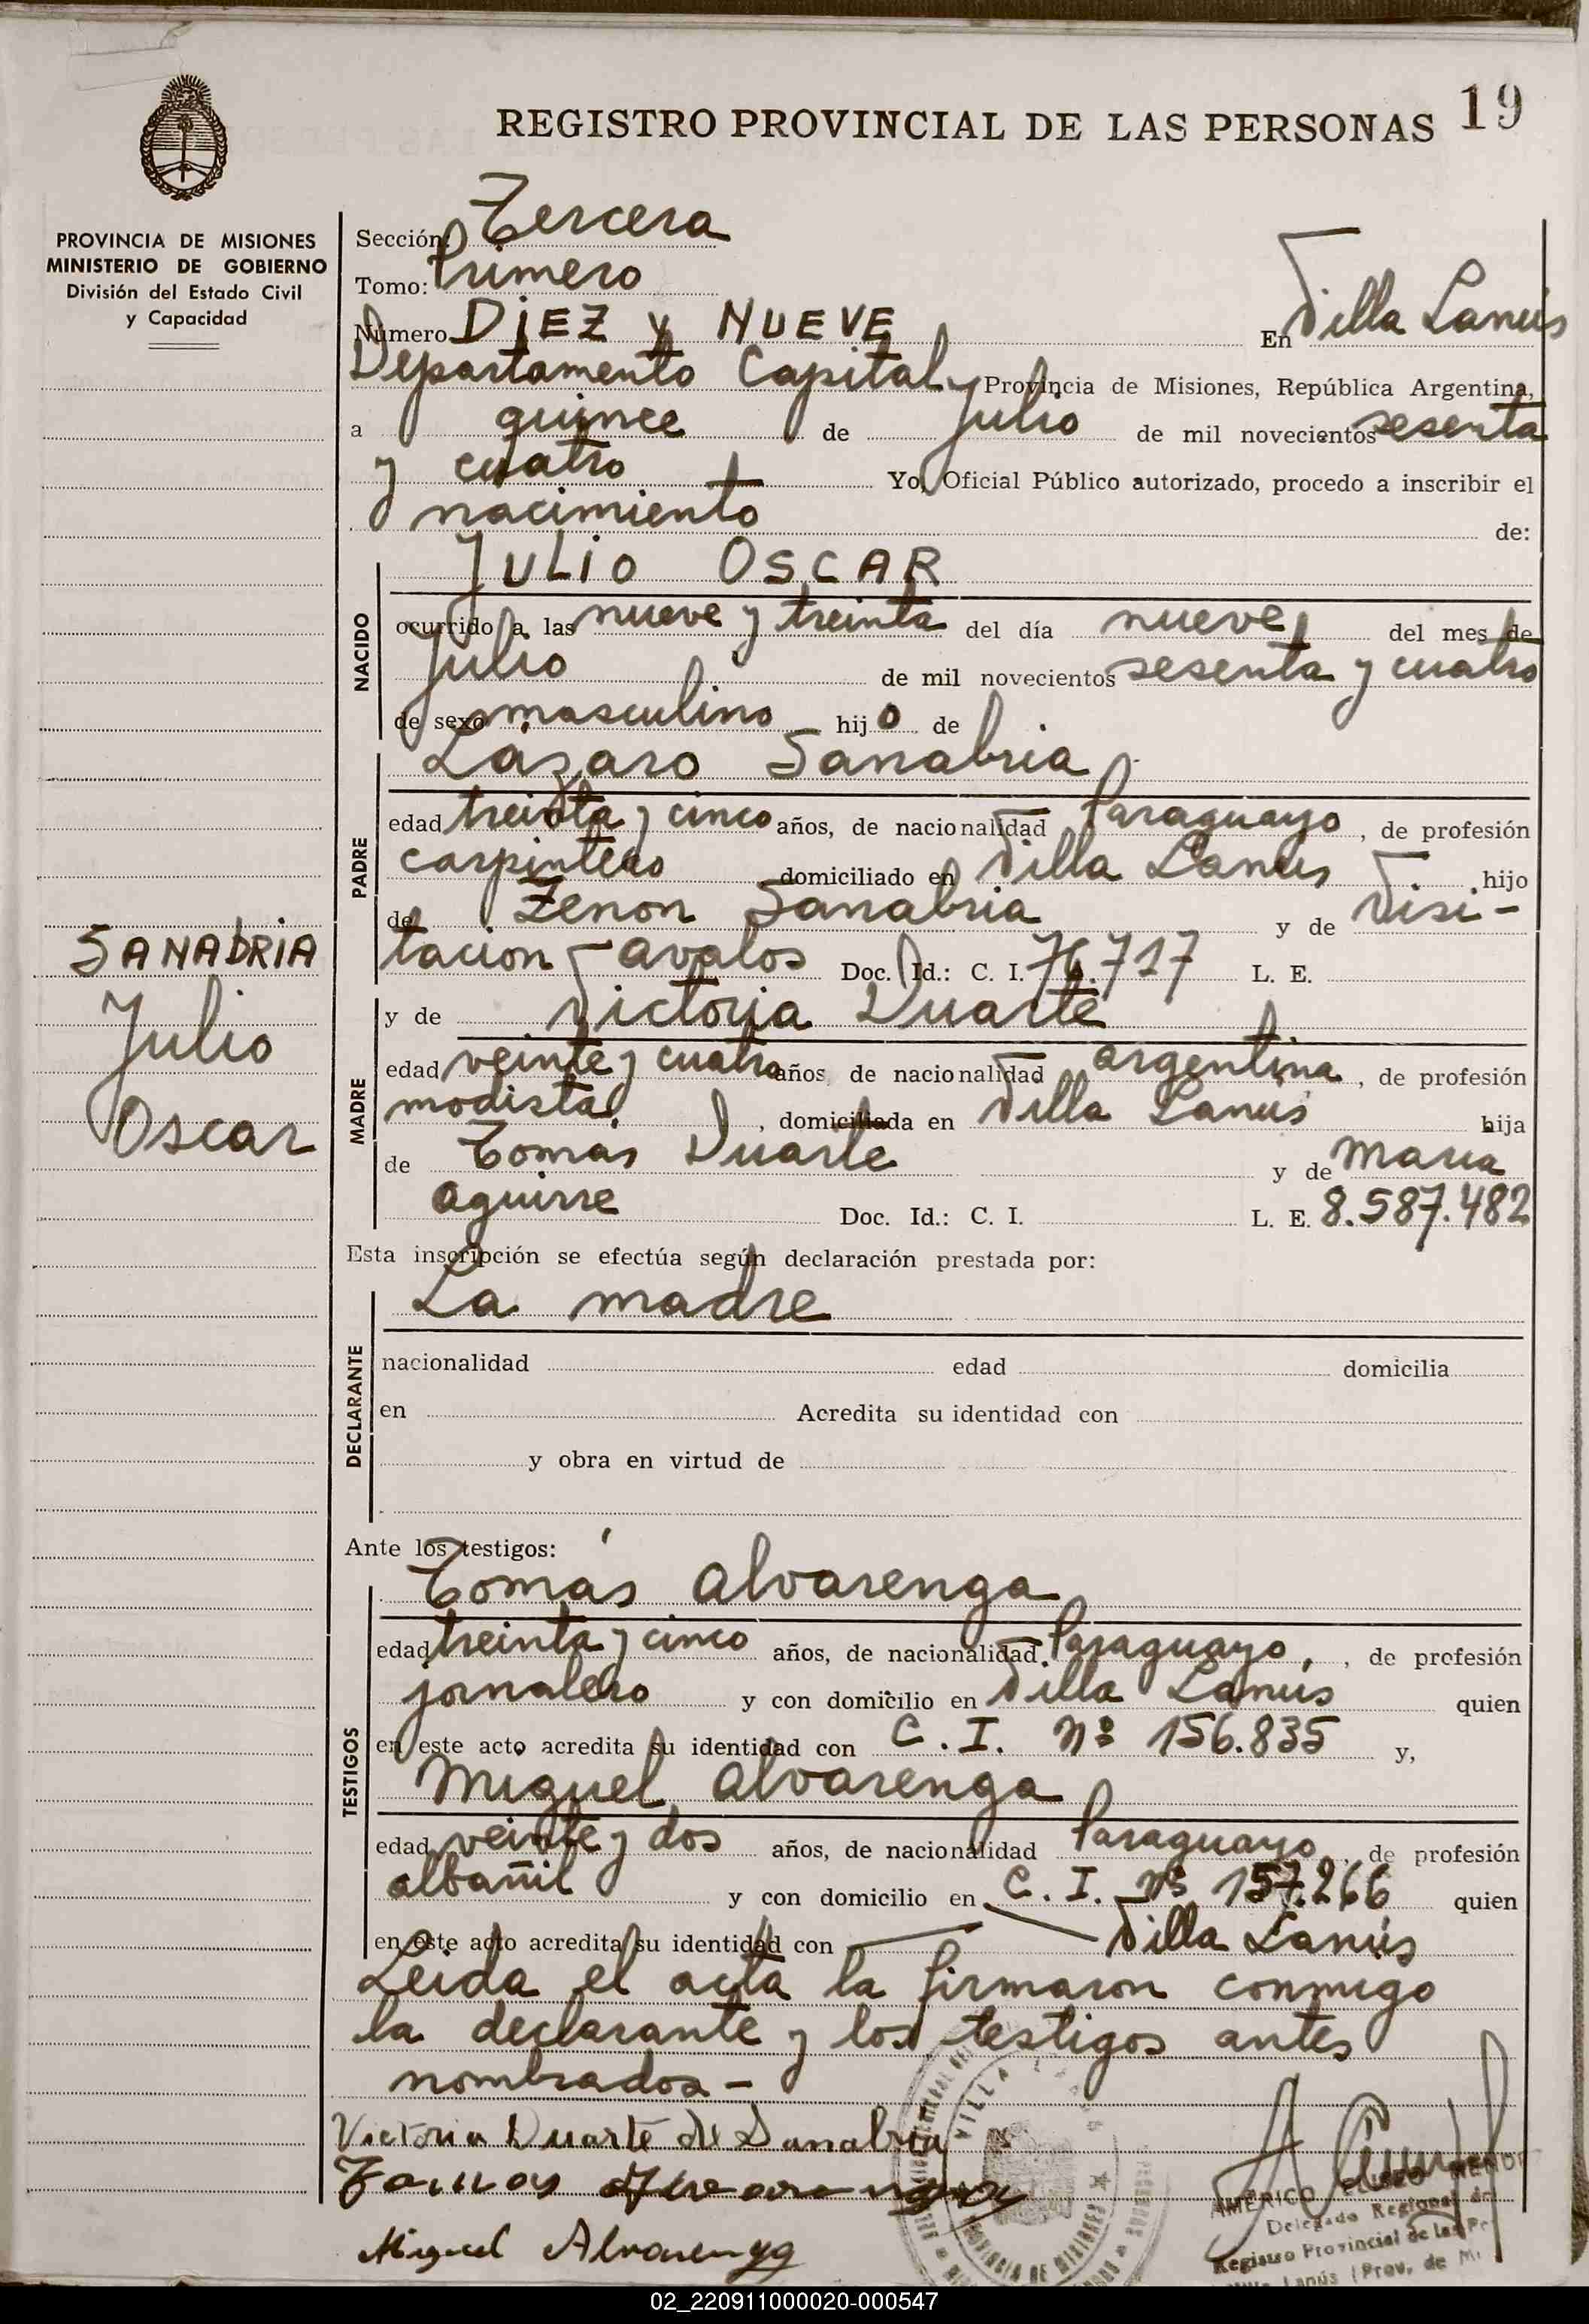 REGISTRO PROVINCIAL DE LAS PERSONAS 19
PROVINCIA DE MISIONES
MINISTERIO DE GOBIERNO
División del Estado Civil
y Capacidad
SANABRIA
Julio
Oscar
Sección: Tercera
Tomo: Primero
Número DIEZ y NUEVE En Villa Lanús
Departamento Capital, Provincia de Misiones, República Argentina,
a quince de Julio de mil novecientos sesenta
y cuatro Yo, Oficial Público autorizado, procedo a inscribir el
nacimiento de:
JULIO OSCAR
NACIDO
ocurrido a las nueve y treinta del día nueve, del mes de
Julio de mil novecientos sesenta y cuatro
de sexo masculino hijo de
Lázaro Sanabria
PADRE
edad treinta y cinco años, de nacionalidad Paraguayo, de profesión
carpintero domiciliado en Villa Lanús hijo
de Zenon Sanabria y de Visi-
tacion avalos Doc. Id.: C. I. 76.717 L. E.
y de Victoria Duarte
MADRE
edad veinte y cuatro años, de nacionalidad argentina, de profesión
modista, domiciliada en Villa Lanús hija
de Tomás Duarte y de Maria
aguirre Doc. Id.: C. I. L. E. 8.587.482
Esta inscripción se efectúa según declaración prestada por:
La madre
DECLARANTE
nacionalidad edad domicilia
en Acredita su identidad con
y obra en virtud de
Ante los testigos:
Tomás alvarenga
TESTIGOS
edad treinta y cinco años, de nacionalidad Paraguayo, de profesión
jornalero y con domicilio en Villa Lanús quien
en este acto acredita su identidad con C. I. Nº 156.835 y,
Miguel alvarenga
edad veinte y dos años, de nacionalidad Paraguayo, de profesión
albañil y con domicilio en C. I. Nº 157.266 quien
en este acto acredita su identidad con Villa Lanús
Leida el acta la firmaron conmigo
la declarante y los testigos antes
nombrados -
Victoria Duarte de Sanabria
Tomas Alvarenga
Miguel Alvarenga
VILLA
PROVINCIA DE MISIONES
AMÉRICO ELISEO
Delegado Regional del
Registro Provincial de las Pe
Lanús (Prov. de Mi
02_220911000020-000547